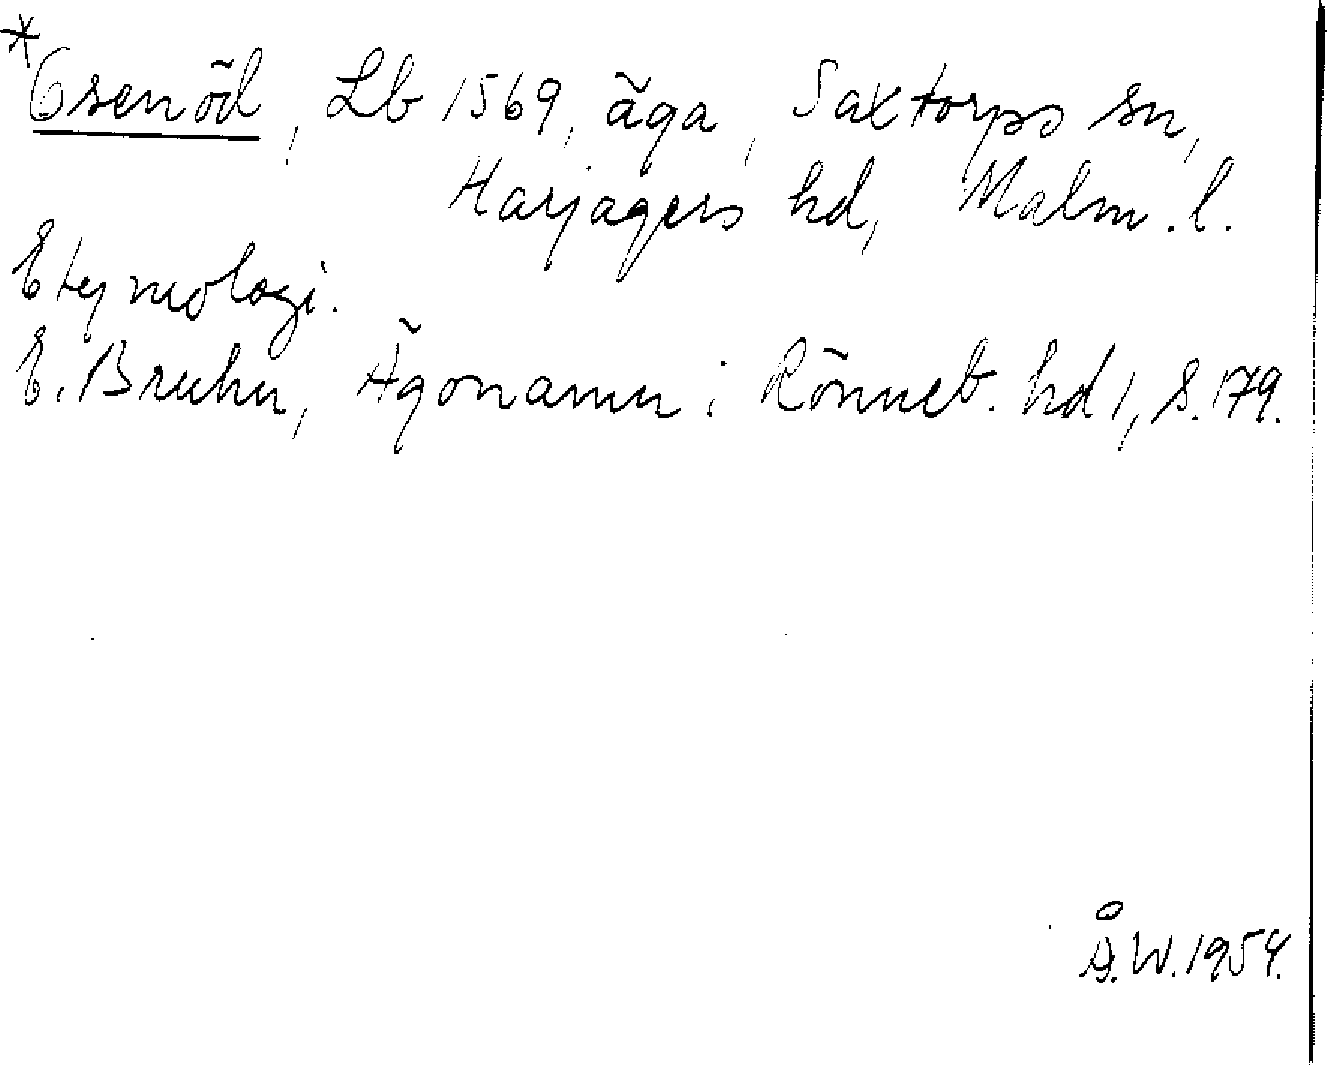 *Osenöd, Lb 1569, äga, Saxtorps sn,
Harjagers hd, Malm. l.
Etymologi.
E. Bruhn, Ägonamn i Rönneb. hd 1, s. 179.
Å.W. 1954.